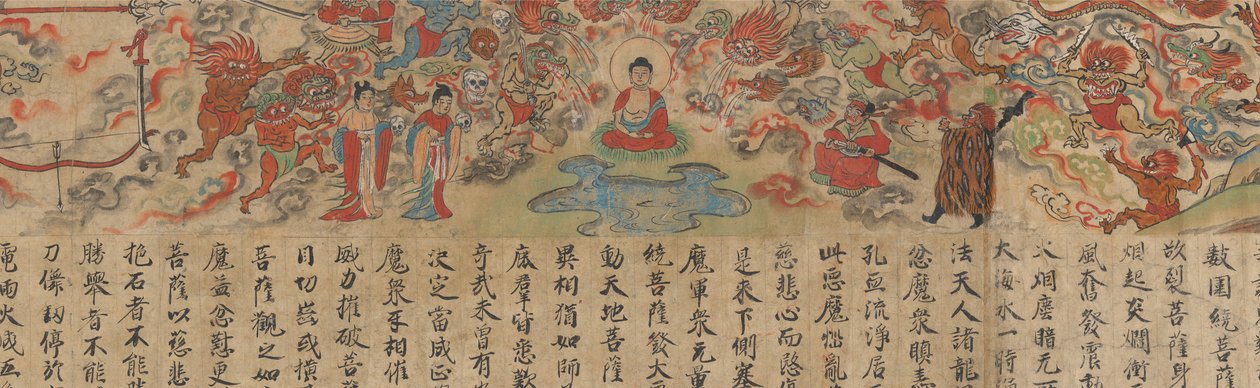 數圍繞菩薩
故裂菩薩身
烟起炎爛衝
風奮發震動
火烟塵暗无
大海水一時
法天人諸龍
忿魔衆瞋恚
孔血流淨居
此惡魔惱亂
慈悲心而愍傷
是來下側塞
魔軍衆无量
繞菩薩發大
動天地菩薩
異相猶如師
底羣皆悉歎
奇哉未曾有
決定當成正
魔衆互相催
威力摧破菩薩
目切齒或橫
菩薩觀之如
魔益忿懟更
菩薩以慈悲
抱石者不能
勝舉者不能
刀儛釰停於
電雨火成五